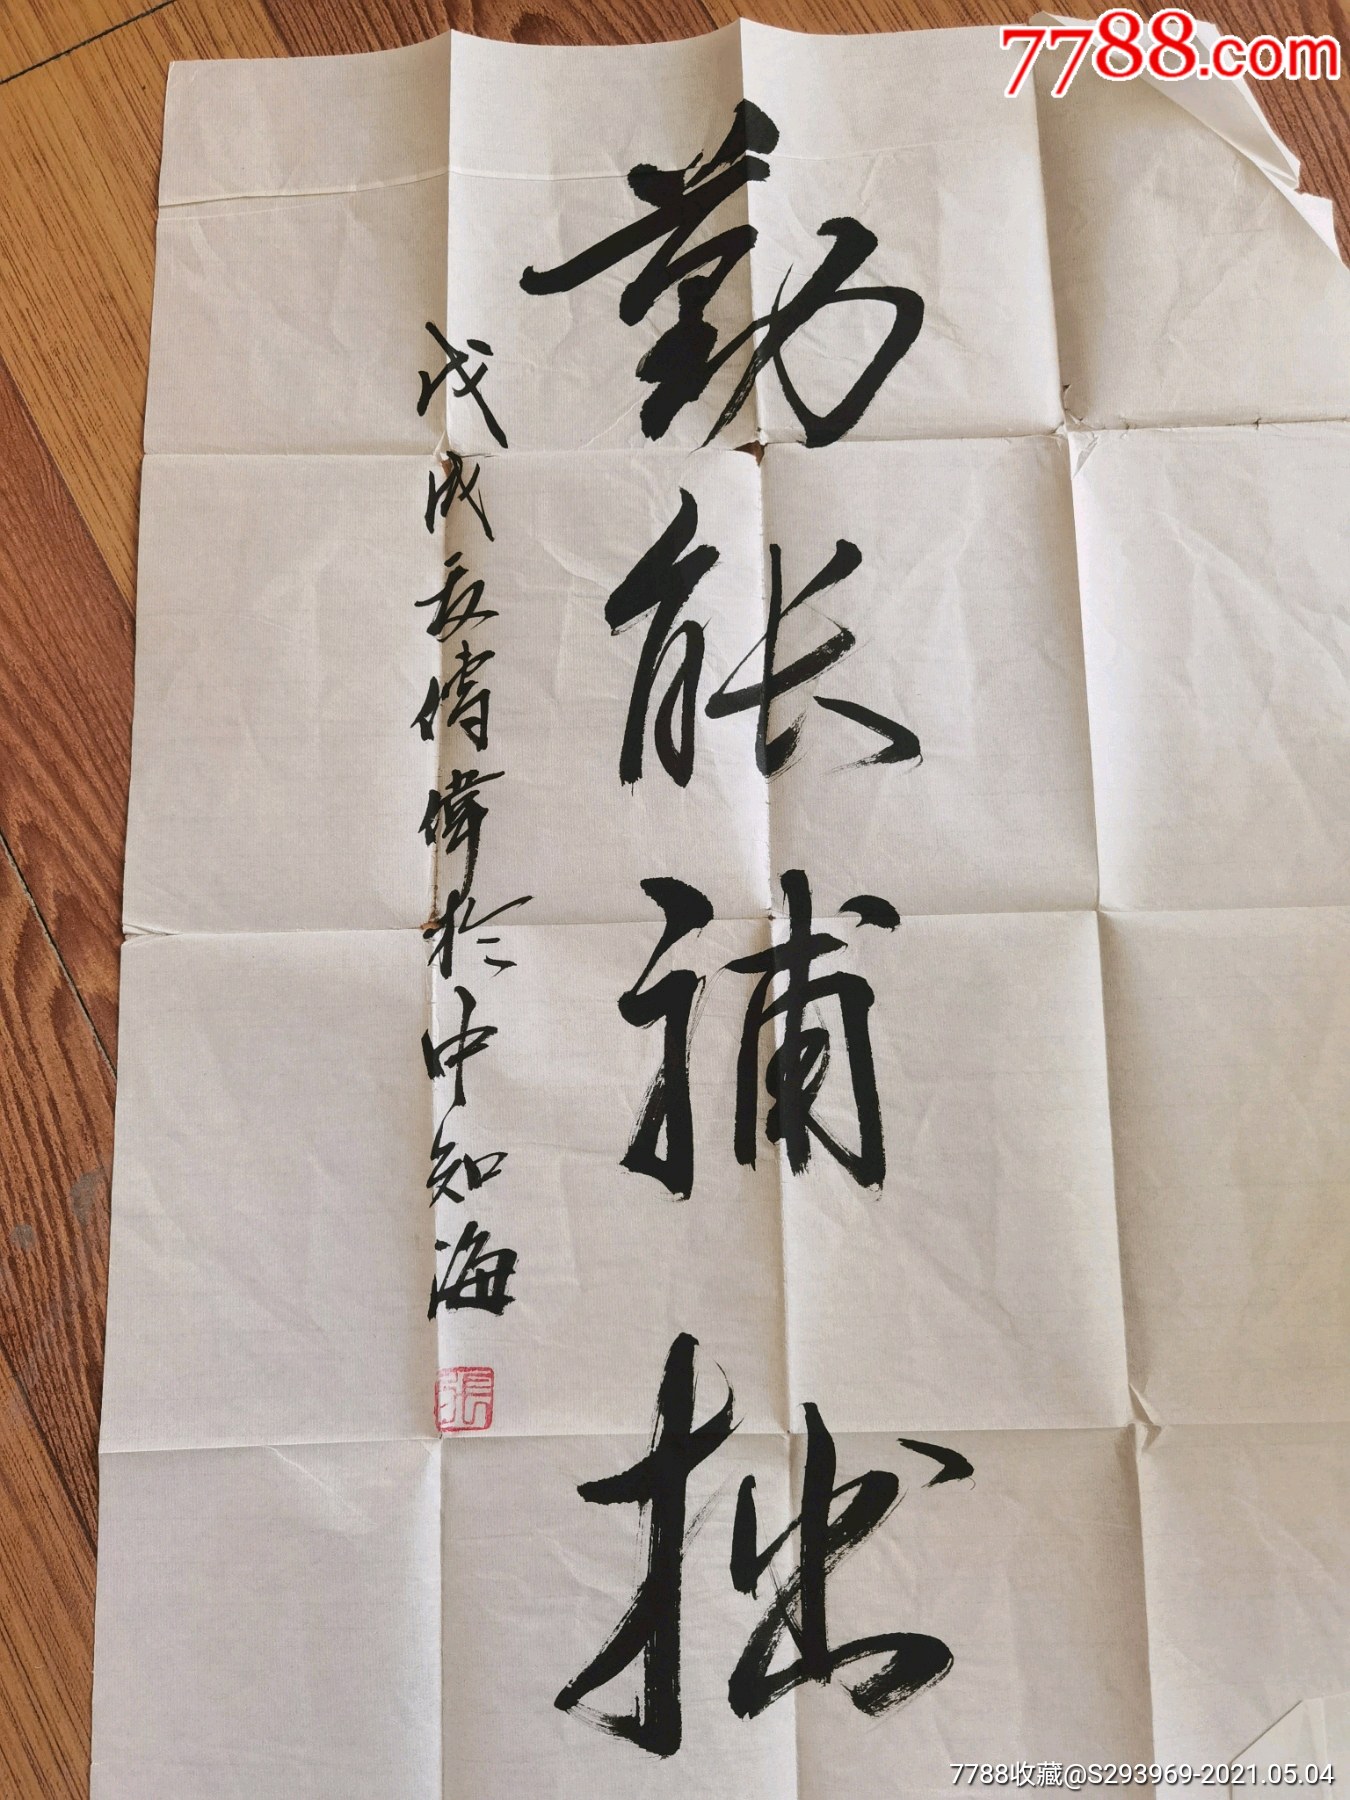 7788.com
勤能補拙
戊戌夏傳偉於中知海
張
7788收藏@S293969-2021.05.04